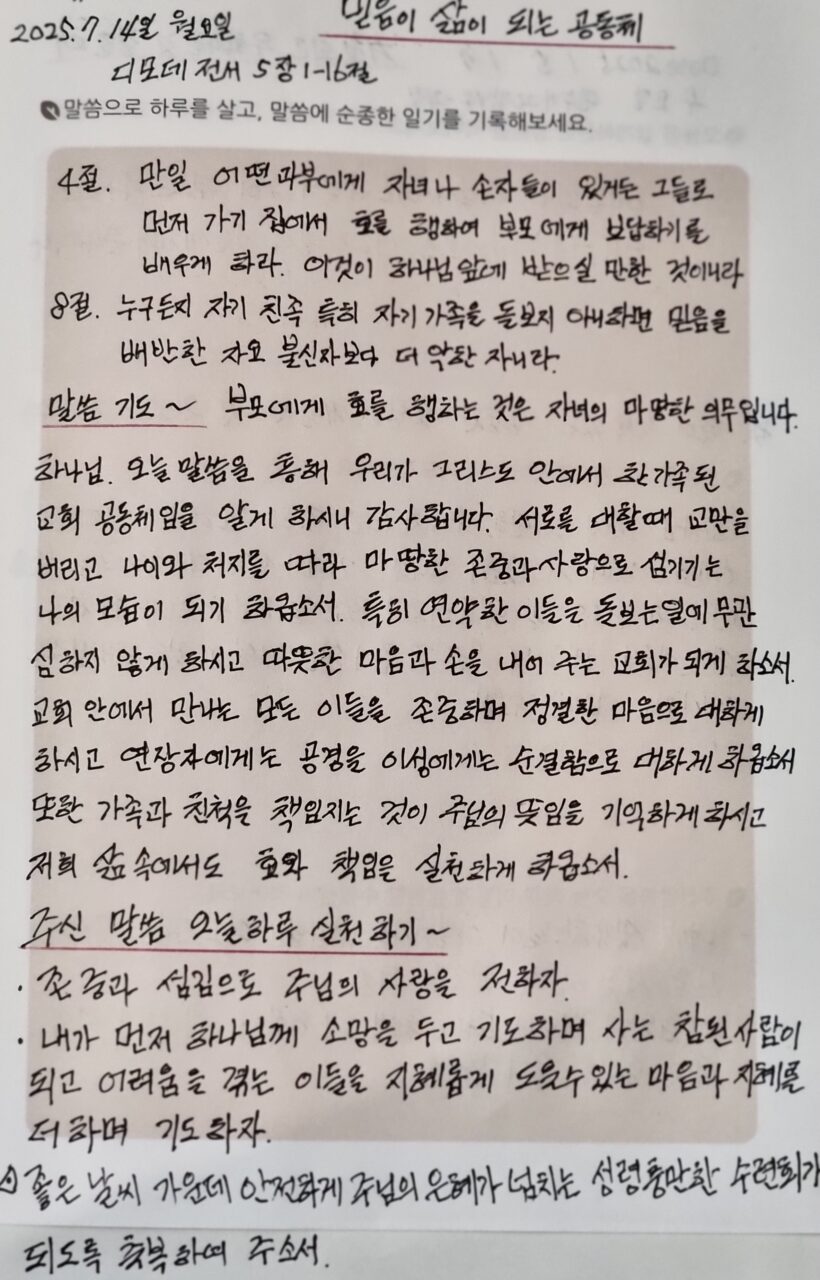 믿음이 삶이 되는 공동체
2025.7.14일 월요일
디모데 전서 5장 1-16절
말씀으로 하루를 살고, 말씀에 순종한 일기를 기록해보세요.
4절. 만일 어떤 과부에게 자녀나 손자들이 있거든 그들로
먼저 자기 집에서 효를 행하여 부모에게 보답하기를
배우게 하라. 이것이 하나님앞에 받으실 만한 것이니라
8절. 누구든지 자기 친족 특히 자기가족을 돌보지 아니하면 믿음을
배반한 자요 불신자보다 더 악한 자니라.
말씀 기도~ 부모에게 효를 행하는 것은 자녀의 마땅한 의무입니다.
하나님. 오늘 말씀을 통해 우리가 그리스도 안에서 한가족된
교회 공동체임을 알게 하시니 감사합니다. 서로를 대할때 교만을
버리고 나이와 처지를 따라 마땅한 존중과 사랑으로 섬기는
나의 모습이 되기 하옵소서. 특히 연약한 이들을 돌보는일에 무관
심하지 않게 하시고 따뜻한 마음과 손을 내어 주는 교회가 되게 하소서.
교회 안에서 만나는 모든 이들을 존중하며 정결한 마음으로 대하게
하시고 연장자에게는 공경을 이성에게는 순결함으로 대하게 하옵소서
또한 가족과 친척을 책임지는 것이 주님의 뜻임을 기억하게 하시고
저희 삶 속에서도 효와 책임을 실천하게 하옵소서.
주신 말씀 오늘하루 실천하기~
· 존중과 섬김으로 주님의 사랑을 전하자.
· 내가 먼저 하나님께 소망을 두고 기도하며 사는 참된사람이
되고 어려움을 겪는 이들을 지혜롭게 도울수 있는 마음과 지혜를
더하며 기도하자.
좋은 날씨 가운데 안전하게 주님의 은혜가 넘치는 성령충만한 수련회가
되도록 축복하여 주소서.